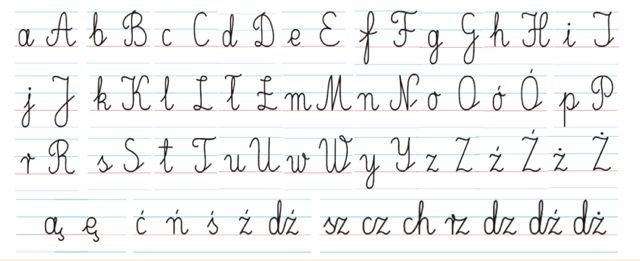 a A b B c C d D e E f F g G h H i I
j J k K l L ł Ł m M n N o O ó Ó p P
r R s S t T u U w W y Y z Z ź Ź ż Ż
ą ę ć ń ś ź dź sz cz ch rz dz dź dż